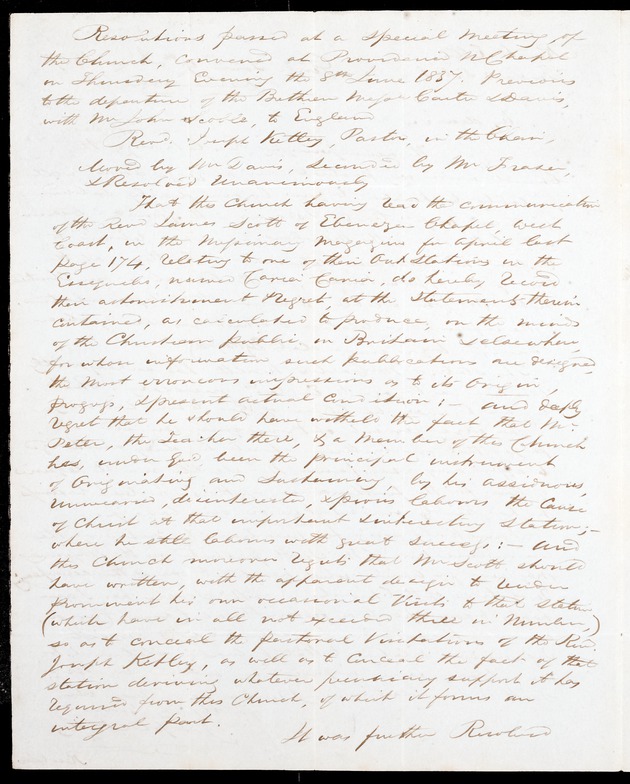 Resolutions passed at a Special Meeting of
the Church, convened at Providence Chapel
on Thursday Evening the 8th June 1837. Previous
to the departure of the Brethren Major Cantu & Davis,
with Mr John Scoble, to England
Revd. Joseph Ketley, Pastor, in the Chair,
Moved by Mr Davis, Seconded by Mr Fraser,
& Resolved Unanimously
That this Church having read the communication
of the Revd James Scott of Ebenezer Chapel, West
Coast, in the Missionary Magazine for April last
page 174, relating to one of their Out Stations in the
Essequibo, named Caria Caria, do hereby record
their astonishment & regret, at the Statements therein
contained, as calculated to produce, on the minds
of the Christian public in Britain & elsewhere,
for whose information such publications are designed,
the most erroneous impressions as to its Origin,
progress, & present actual condition; – and deeply
regret that he should have witheld the fact that Mr
Peter, the Teacher there, & a Member of this Church
has, under God been the principal instrument
of Originating and Sustaining, by his assiduous,
unwearied, disinterested, & pious labours the Cause
of Christ at that important & interesting Station; –
where he still labours with great success: – and
this Church moreover regrets that Mr Scott should
have written, with the apparent design to render
prominent his own occasional Visits to that Station
(which have in all not exceeded three in Number,)
so as to conceal the pastoral Visitations of the Revd.
Joseph Ketley, as well as to conceal the fact of that
station deriving whatever pecuniary support it has
required from this Church, of which it forms an
integral part.
It was further Resolved